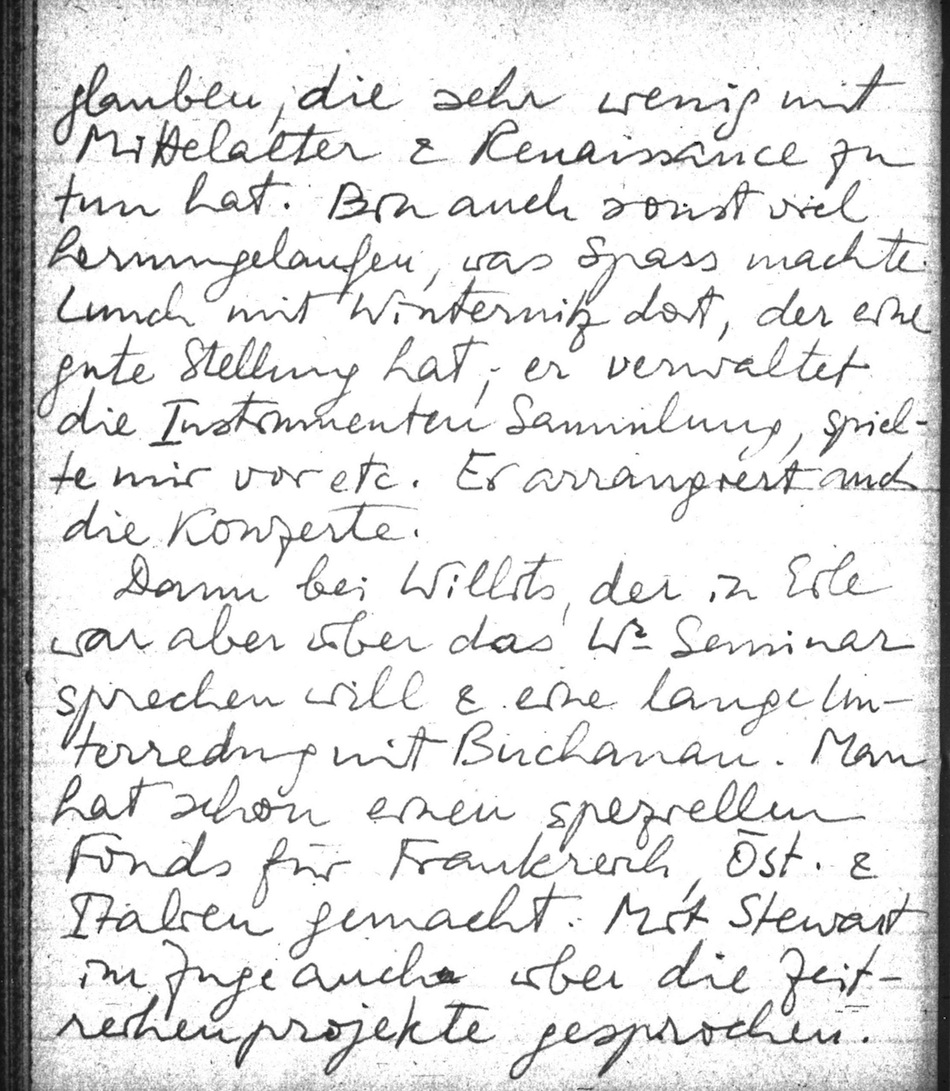 glauben, die sehr wenig mit
Mittelalter & Renaissance zu
tun hat. Bin auch sonst viel
herumgelaufen, was Spass machte.
Lunch mit Winternitz dort, der eine
gute Stellung hat; er verwaltet
die Instrumenten Sammlung, spiel-
te mir vor etc. Er arrangiert auch
die Konzerte.
Dann bei Willits, der in Eile
war aber über das Wr Seminar
sprechen will & eine lange Un-
terredung mit Buchanan. Man
hat schon einen speziellen
Fonds für Frankreich, Öst. &
Italien gemacht. Mit Stewart
im Zuge auch über die Zeit-
reihenprojekte gesprochen.